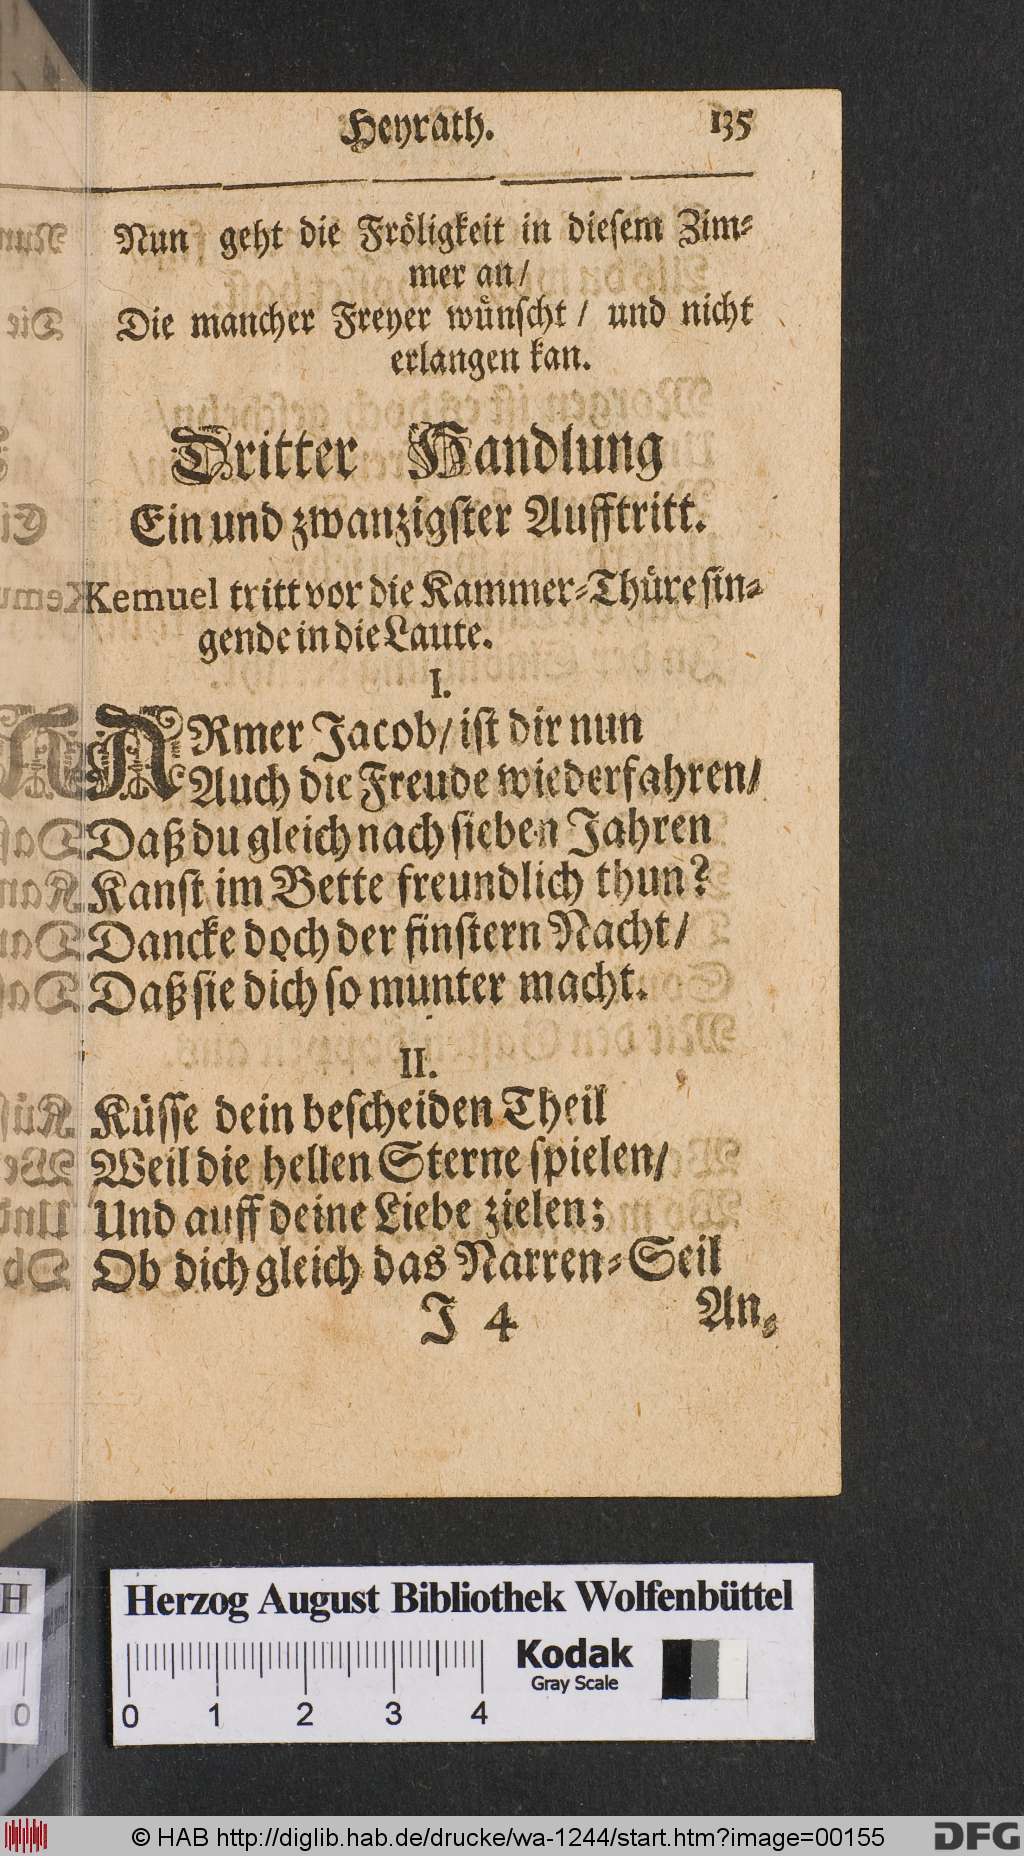 Heyrath. 135
Nun geht die Fröligkeit in diesem Zim-
mer an/
Die mancher Freyer wünscht / und nicht
erlangen kan.
Dritter Handlung
Ein und zwanzigster Aufftritt.
Kemuel tritt vor die Kammer-Thüre sin-
gende in die Laute.
I.
ARmer Jacob/ ist dir nun
Auch die Freude wiederfahren/
Daß du gleich nach sieben Jahren
Kanst im Bette freundlich thun?
Dancke doch der finstern Nacht/
Daß sie dich so munter macht.
II.
Küsse dein bescheiden Theil
Weil die hellen Sterne spielen/
Und auff deine Liebe zielen;
Ob dich gleich das Narren-Seil
J 4 An-
Herzog August Bibliothek Wolfenbüttel
Kodak
Gray Scale
0 1 2 3 4
© HAB http://diglib.hab.de/drucke/wa-1244/start.htm?image=00155 DFG